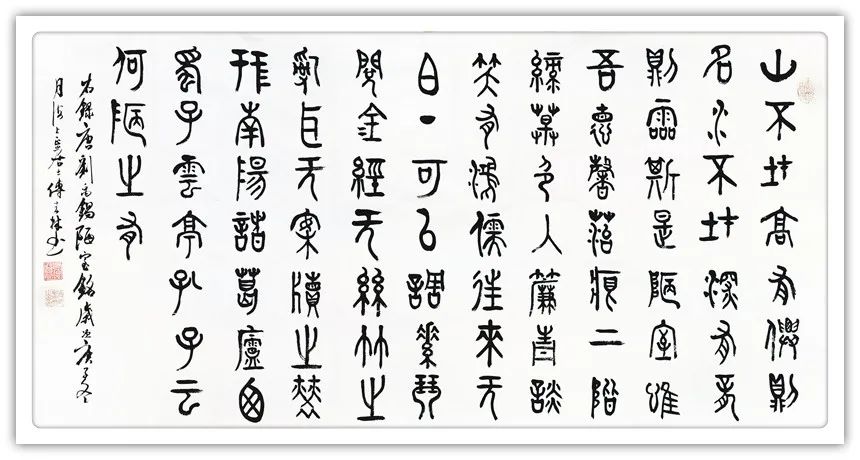 山不在高有僊則
名水不在深有龍
則靈斯是陋室唯
吾悳馨菭痕上階
綠草色入簾青談
笑有鴻儒往來无
白丁可以調素琴
閱金經无絲竹之
亂耳无案牘之勞
形南陽諸葛廬西
蜀子雲亭孔子云
何陋之有
右錄唐劉禹錫陋室銘歲次庚子冬
月